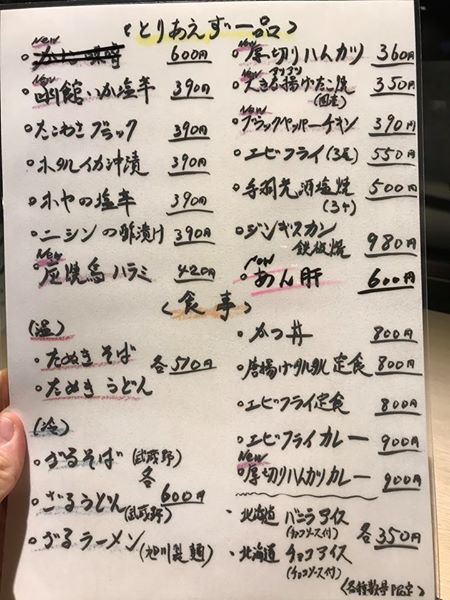 <とりあえず一品>
New
600円
New
。函館いか塩辛 390円
。たこわさブラック 390円
。ホタルイカ沖漬 390円
。ホヤの塩辛 390円
。ニシンの酢漬け 390円
New
。炙焼鳥ハラミ 420円
New
。厚切りハムカツ 360円
プリプリ
。大きな揚げたこ焼 350円
(国産)
New
。ブラックペッパーチキン 390円
。エビフライ(3尾) 550円
。手羽先酒塩焼 500円
(3ヶ)
。ジンギスカン
鉄板焼 980円
New
。あん肝 600円
<食事>
(温)
。たぬきそば 各510円
。たぬきうどん
(冷)
。ざるそば(武蔵野)
各
600円
。ざるうどん
(武蔵野)
。ざるラーメン(旭川製麺)
。かつ丼 800円
。唐揚げタルタル定食 800円
。エビフライ定食 800円
。エビフライカレー 900円
New
。厚切りハムカツカレー 900円
・北海道 バニラアイス
(チョコソース付)
各350円
・北海道 チョコアイス
(チョコソース付)